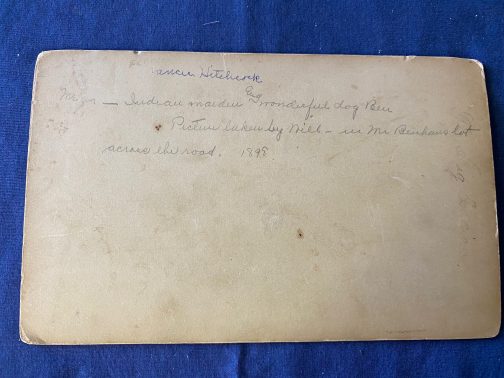 Hitchcock
— Indian maiden Eng wonderful dog Ben
Picture taken by Will – in Mr lot
across the road. 1898